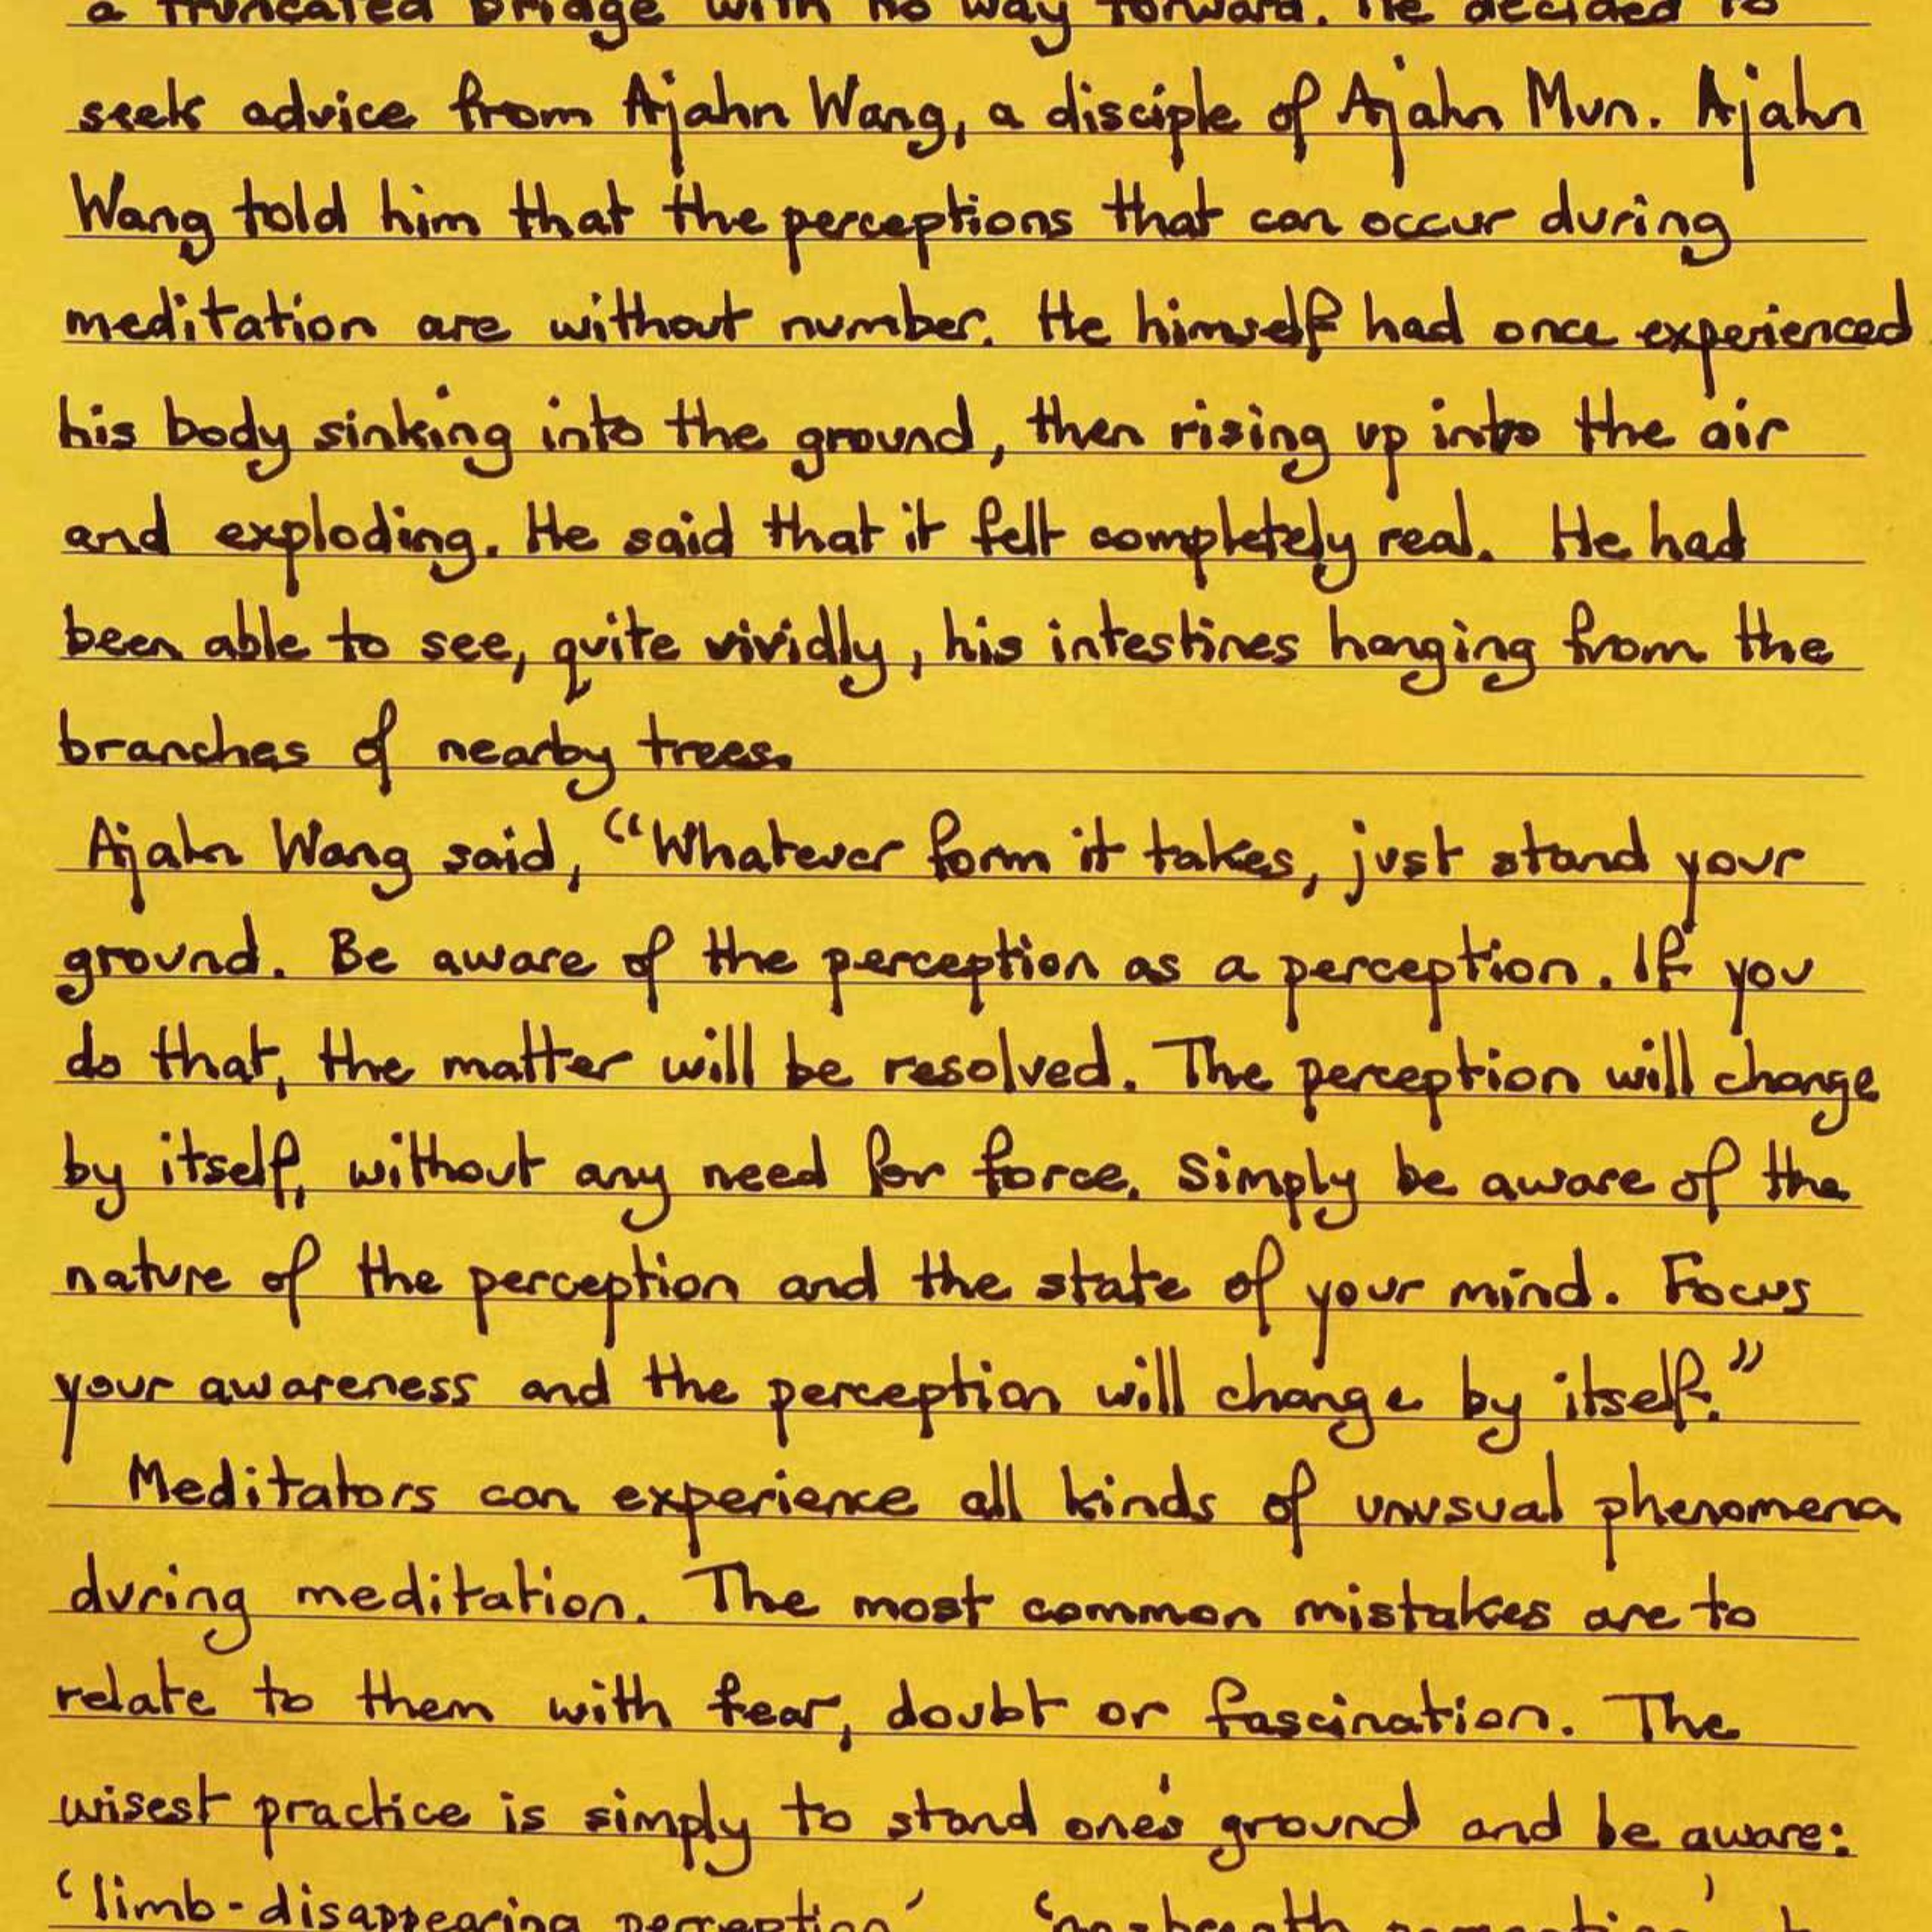 a truncated bridge with no way forward. He decided to
seek advice from Ajahn Wang, a disciple of Ajahn Mun. Ajahn
Wang told him that the perceptions that can occur during
meditation are without number. He himself had once experienced
his body sinking into the ground, then rising up into the air
and exploding. He said that it felt completely real. He had
been able to see, quite vividly, his intestines hanging from the
branches of nearby trees.
Ajahn Wang said, “Whatever form it takes, just stand your
ground. Be aware of the perception as a perception. If you
do that, the matter will be resolved. The perception will change
by itself, without any need for force. Simply be aware of the
nature of the perception and the state of your mind. Focus
your awareness and the perception will change by itself.”
Meditators can experience all kinds of unusual phenomena
during meditation. The most common mistakes are to
relate to them with fear, doubt or fascination. The
wisest practice is simply to stand one's ground and be aware:
‘limb-disappearing perception’ ‘no-breath perception’